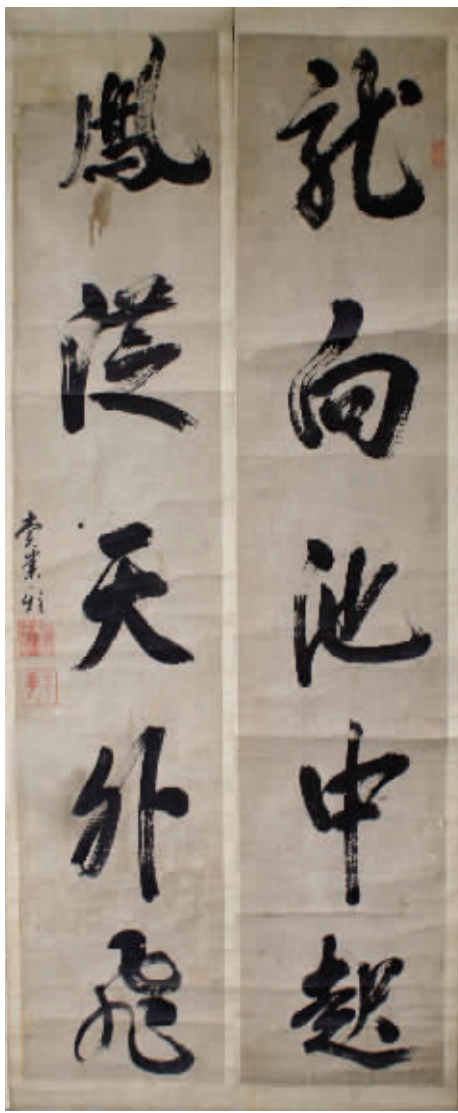 龍向池中起
鳳從天外飛